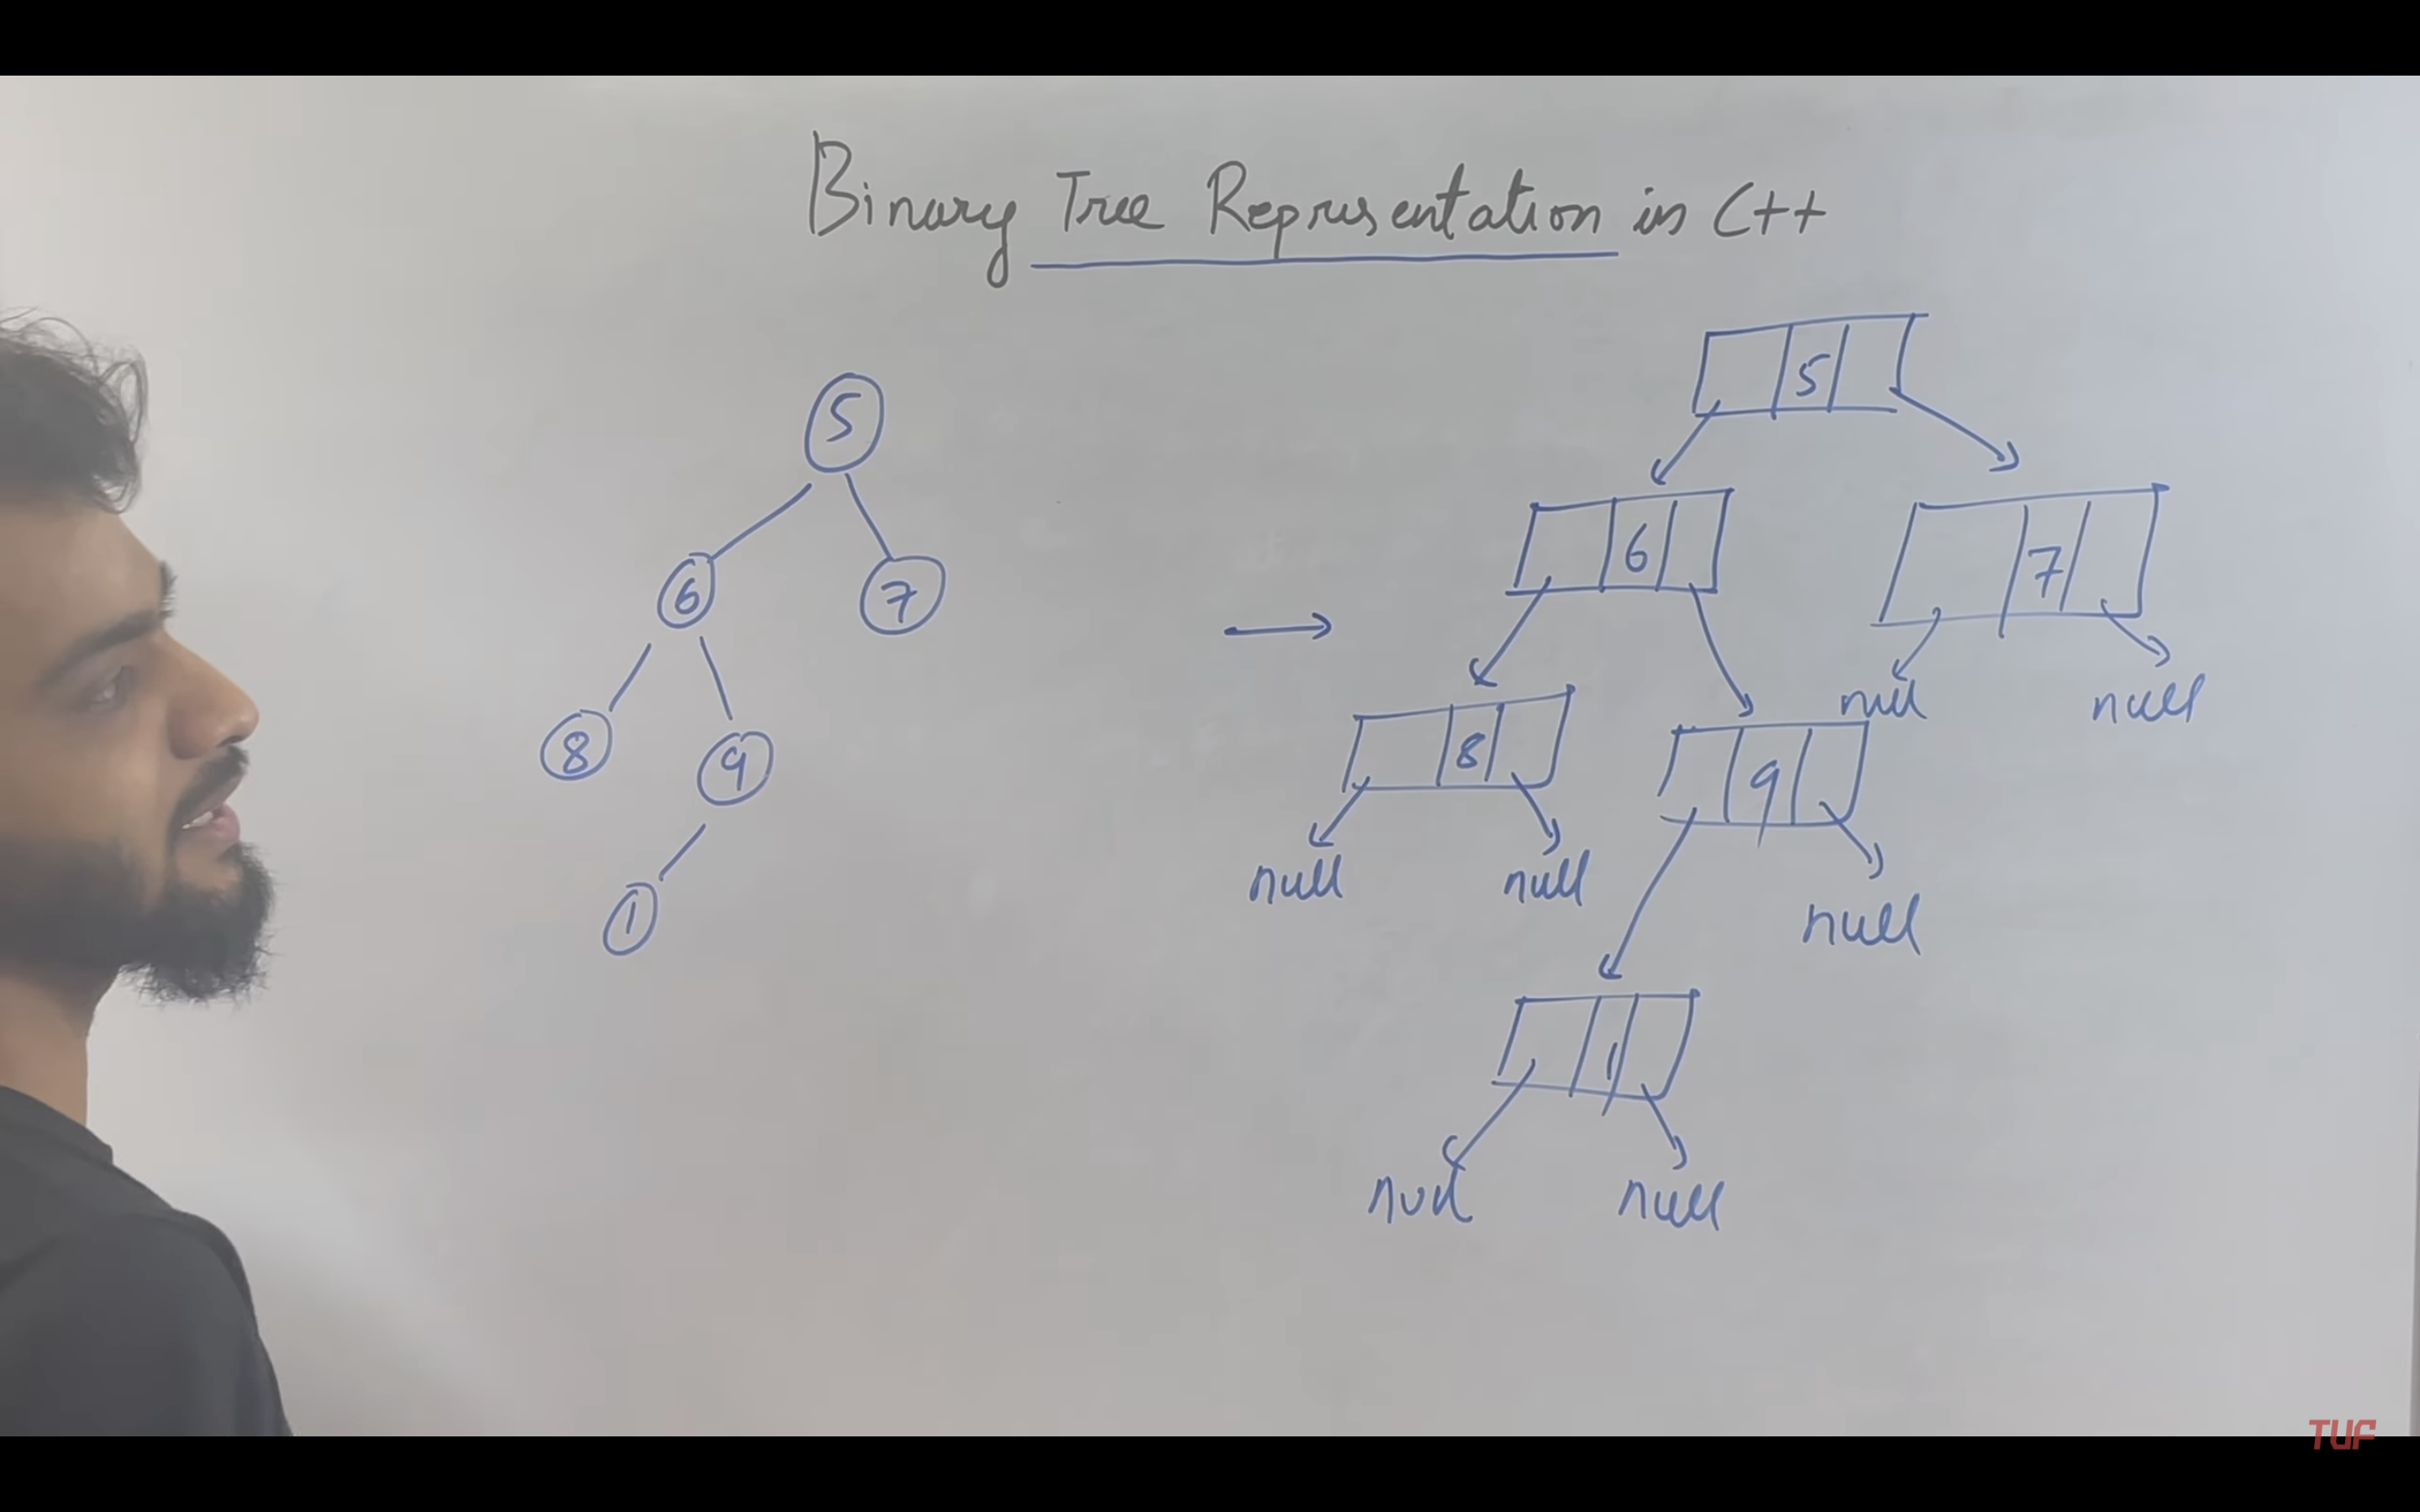 Binary Tree Representation in C++
5
5
6
7
6
7
8
9
null
null
8
9
1
null
null
null
1
null
null
TUF